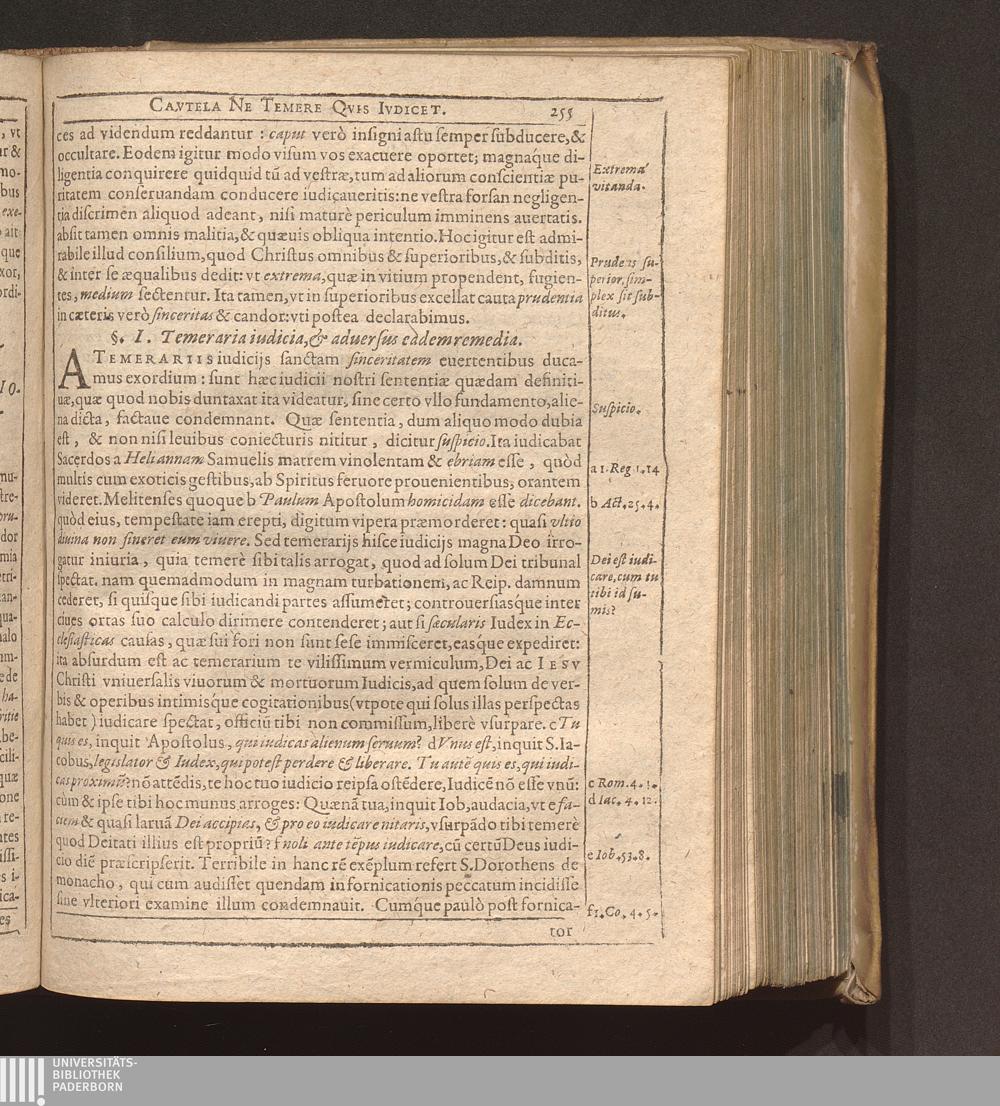 CAVTELA NE TEMERE QVIS IVDICET. 255
ces ad videndum reddantur : caput verò insigni astu semper subducere, &
occultare. Eodem igitur modo visum vos exacuere oportet; magnaq́ue di-
ligentia conquirere quidquid tū ad vestræ, tum ad aliorum conscientiæ pu-
ritatem conseruandam conducere iudicaueritis: ne vestra forsan negligen-
tia discrimen aliquod adeant, nisi maturè periculum imminens auertatis.
absit tamen omnis malitia, & quæuis obliqua intentio. Hoc igitur est admi-
rabile illud consilium, quod Christus omnibus & superioribus, & subditis,
& inter se æqualibus dedit: vt extrema, quæ in vitium propendent, fugien-
tes, medium sectentur. Ita tamen, vt in superioribus excellat cauta prudentia
in cæteris verò sinceritas & candor: vti postea declarabimus.
§. I. Temeraria iudicia, & aduersus eadem remedia.
A TEMERARIIS iudicijs sanctam sinceritatem euertentibus duca-
mus exordium: sunt hæc iudicii nostri sententiæ quædam definiti-
uæ, quæ quod nobis duntaxat ita videatur, sine certo vllo fundamento, alie-
na dicta, factaue condemnant. Quæ sententia, dum aliquo modo dubia
est, & non nisi leuibus coniecturis nititur, dicitur suspicio. Ita iudicabat
Sacerdos a Heli annam Samuelis matrem vinolentam & ebriam esse, quòd
multis cum exoticis gestibus, ab Spiritus feruore prouenientibus, orantem
videret. Melitenses quoque b Paulum Apostolum homicidam esse dicebant.
quòd eius, tempestate iam erepti, digitum vipera præmorderet: quasi vltio
diuina non sineret eum viuere. Sed temerarijs hisce iudicijs magna Deo irro-
gatur iniuria, quia temerè sibi talis arrogat, quod ad solum Dei tribunal
spectat. nam quemadmodum in magnam turbationem, ac Reip. damnum
cederet, si quisque sibi iudicandi partes assumeret; controuersiasq́ue inter
ciues ortas suo calculo dirimere contenderet; aut si sæcularis Iudex in Ec-
clesiasticas causas, quæ sui fori non sunt sese immisceret, easq́ue expediret:
ita absurdum est ac temerarium te vilissimum vermiculum, Dei ac IESV
Christi vniuersalis viuorum & mortuorum Iudicis, ad quem solum de ver-
bis & operibus intimisq́ue cogitationibus (vtpote qui solus illas perspectas
habet) iudicare spectat, officiū tibi non commissum, liberè vsurpare. c Tu
quis es, inquit Apostolus, qui iudicas alienum seruum? d Vnus est, inquit S. Ia-
cobus, legislator & Iudex, qui potest perdere & liberare. Tu autē quis es, qui iudi-
cas proximū? nō attēdis, te hoc tuo iudicio reipsa ostēdere, Iudicē nō esse vnū:
cùm & ipse tibi hoc munus arroges: Quænā tua, inquit Iob, audacia, vt e fa-
ciem & quasi laruā Dei accipias, & pro eo iudicare nitaris, vsurpādo tibi temerè
quod Deitati illius est propriū? f noli ante tēpus iudicare, cū certū Deus iudi-
cio diē præscripserit. Terribile in hanc rē exēplum refert S. Dorothens de
monacho, qui cum audisset quendam in fornicationis peccatum incidisse
sine vlteriori examine illum condemnauit. Cumq́ue paulò post fornica-
tor
Extrema
vitanda.
Prudens su-
perior, sim-
plex sit sub-
ditus.
Suspicio.
a 1. Reg 1. 14
b Act. 25. 4.
Dei est iudi-
care, cum tu
tibi id su-
mis?
c Rom. 4. 1.
d Iac. 4. 12.
e Iob. 53. 8.
f 1. Co. 4. 5.
UNIVERSITÄTS-
BIBLIOTHEK
PADERBORN